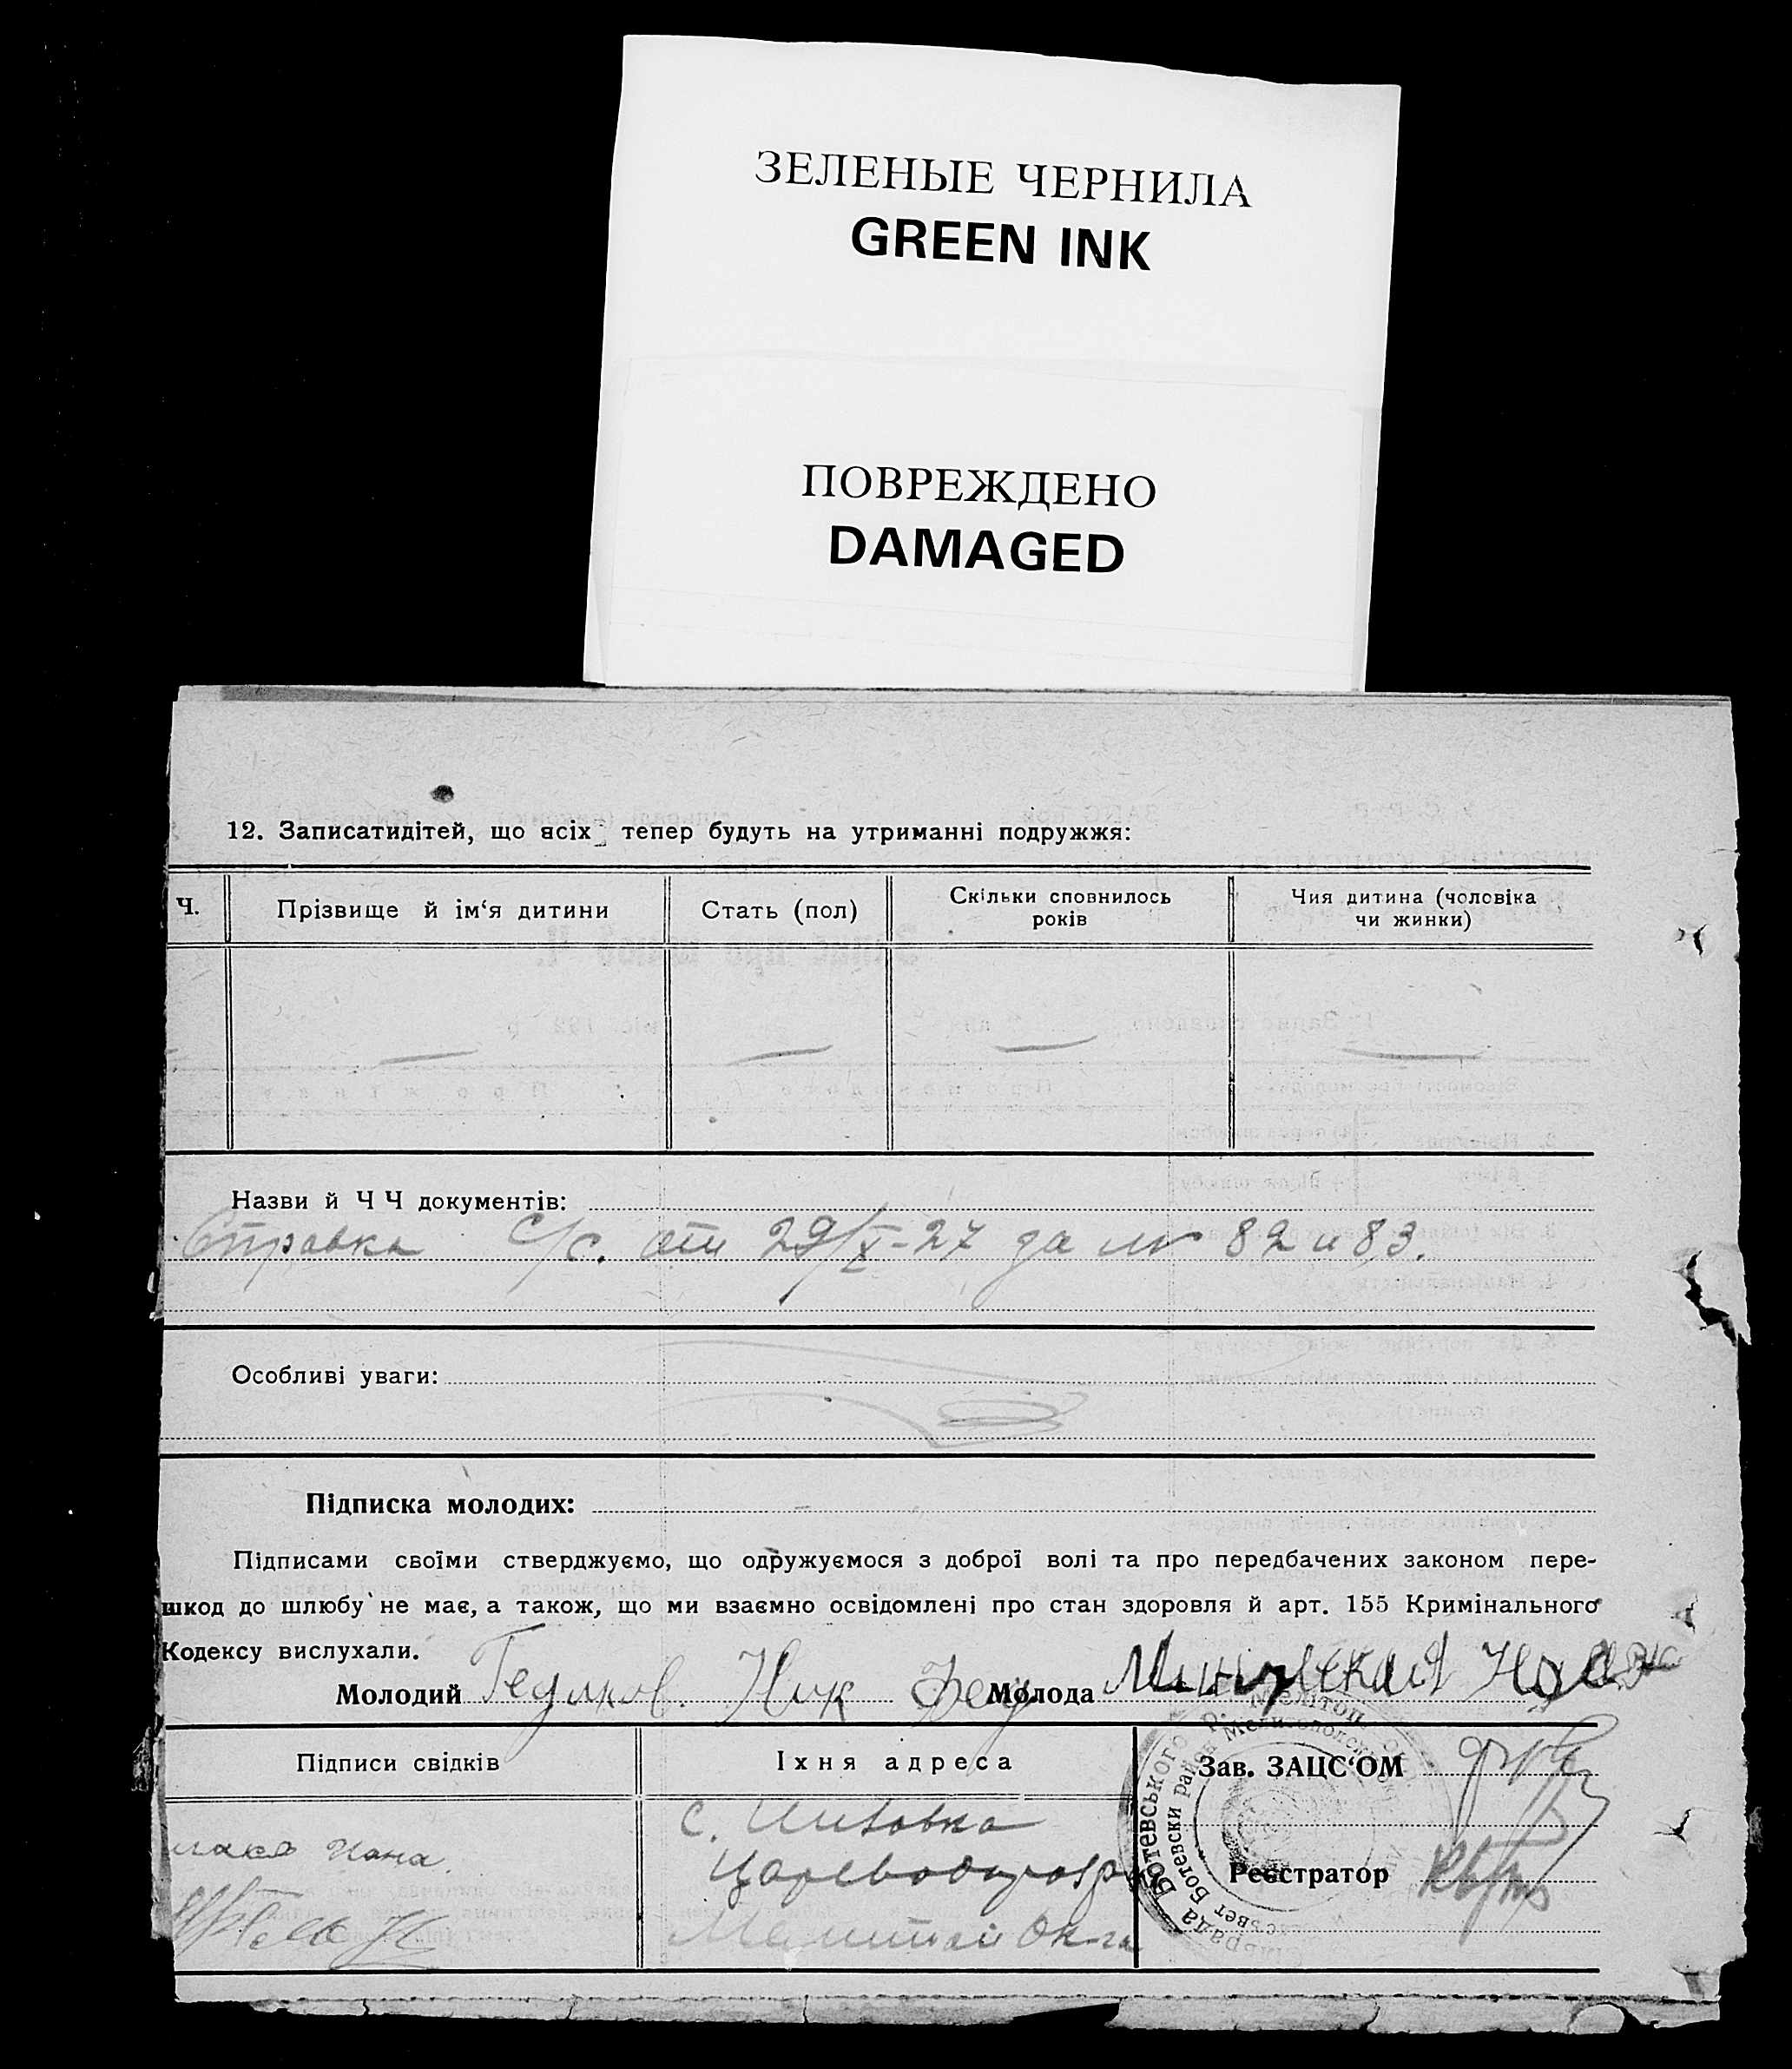 ЗЕЛЕНЫЕ ЧЕРНИЛА
GREEN INK
ПОВРЕЖДЕНО
DAMAGED
12. Записатидітей, що всіх тепер будуть на утриманні подружжя:
Ч.
Прізвище й ім‘я дитини
Стать (пол)
Скільки сповнилось
років
Чия дитина (чоловіка
чи жинки)
Назви й Ч Ч документів:
Справка с/с. от 29/X-27 да 82 и 83.
Особливі уваги:
Підписка молодих:
Підписами своїми стверджуємо, що одружуємося з доброї волі та про передбачених законом пере-
шкод до шлюбу не має, а також, що ми взаємно освідомлені про стан здоровля й арт. 155 Кримінального
Кодексу вислухали.
Молодий Гедиков. Ник Фед Молода
Підписи свідків
Їхня адреса
Зав. ЗАЦС‘ОМ
с.
Реєстратор
Ботевського
Ботевски район